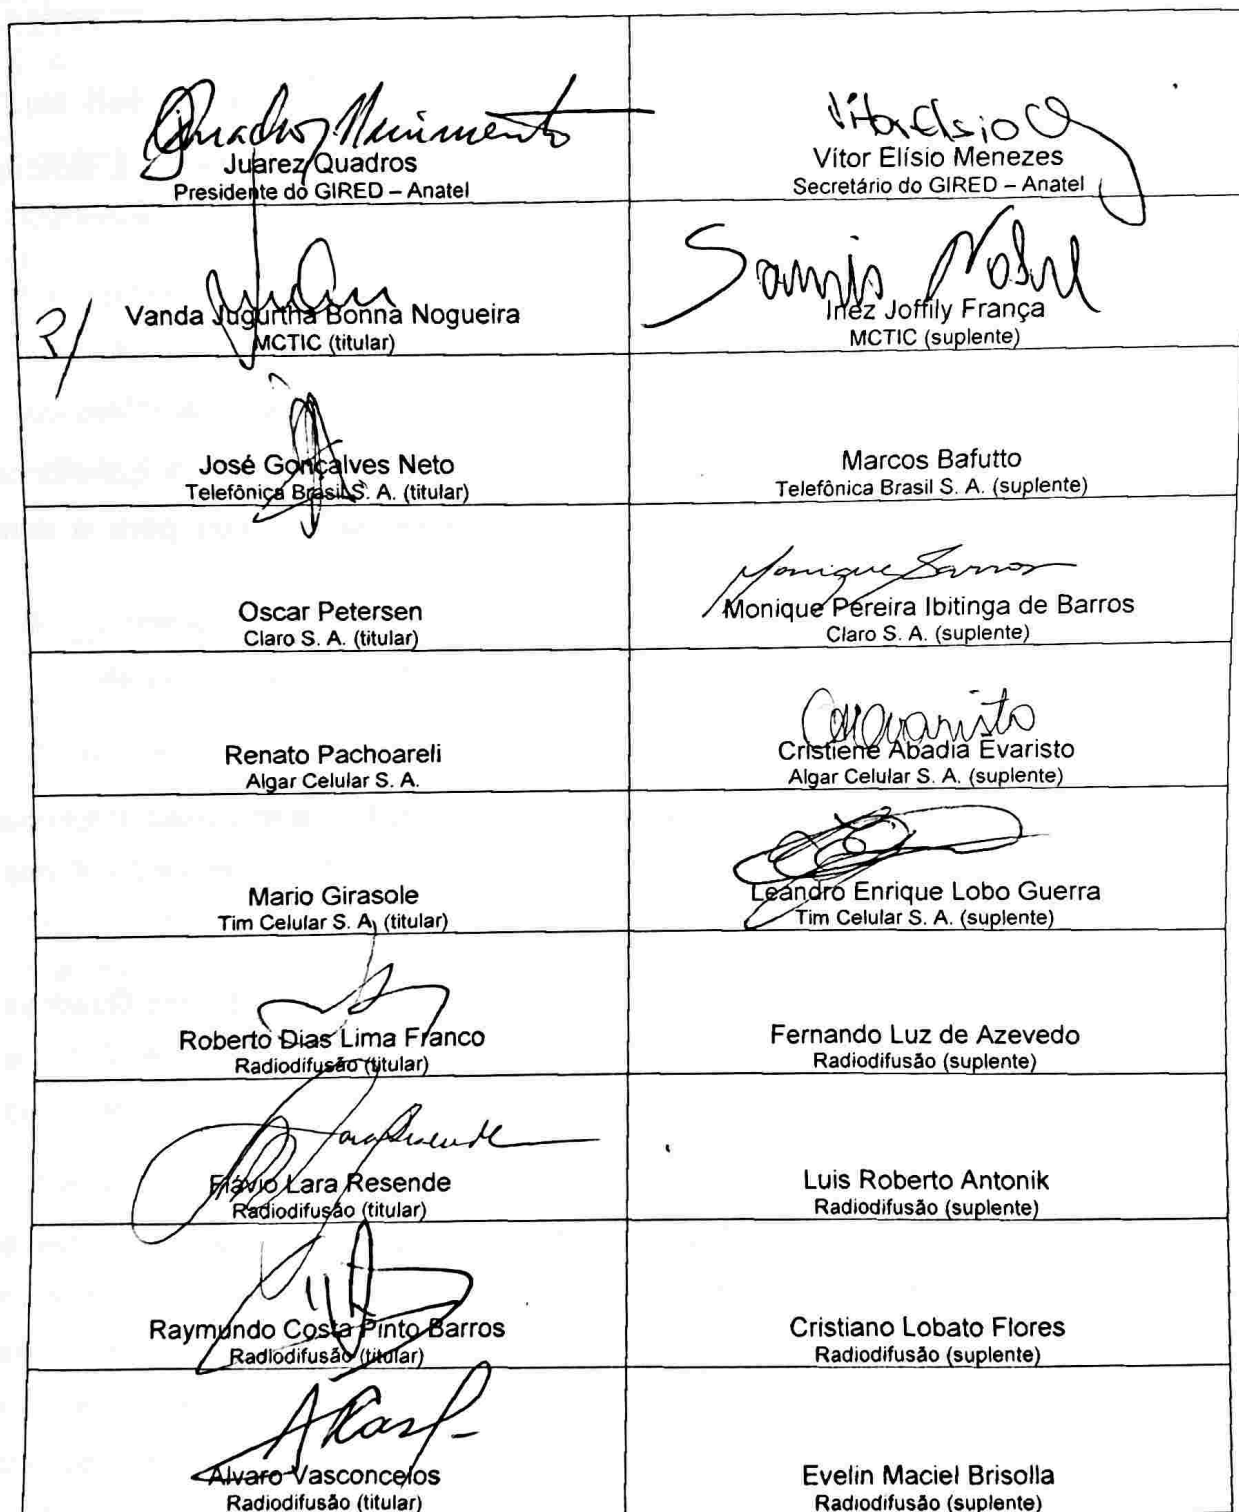 Quadros Nascimento
Juarez Quadros
Presidente do GIRED – Anatel
Vitor Elisio
Vítor Elísio Menezes
Secretário do GIRED – Anatel
P/
Vanda Jugurtha Bonna Nogueira
MCTIC (titular)
Samir Nobre
Inez Joffily França
MCTIC (suplente)
José Gonçalves Neto
Telefônica Brasil S. A. (titular)
Marcos Bafutto
Telefônica Brasil S. A. (suplente)
Oscar Petersen
Claro S. A. (titular)
Monique Barros
Monique Pereira Ibitinga de Barros
Claro S. A. (suplente)
Renato Pachoareli
Algar Celular S. A.
Evaristo
Cristiene Abadia Evaristo
Algar Celular S. A. (suplente)
Mario Girasole
Tim Celular S. A. (titular)
Leandro Enrique Lobo Guerra
Tim Celular S. A. (suplente)
Roberto Dias Lima Franco
Radiodifusão (titular)
Fernando Luz de Azevedo
Radiodifusão (suplente)
Lara Resende
Flávio Lara Resende
Radiodifusão (titular)
Luis Roberto Antonik
Radiodifusão (suplente)
Raymundo Costa Pinto Barros
Radiodifusão (titular)
Cristiano Lobato Flores
Radiodifusão (suplente)
Alvaro Vasconcelos
Radiodifusão (titular)
Evelin Maciel Brisolla
Radiodifusão (suplente)